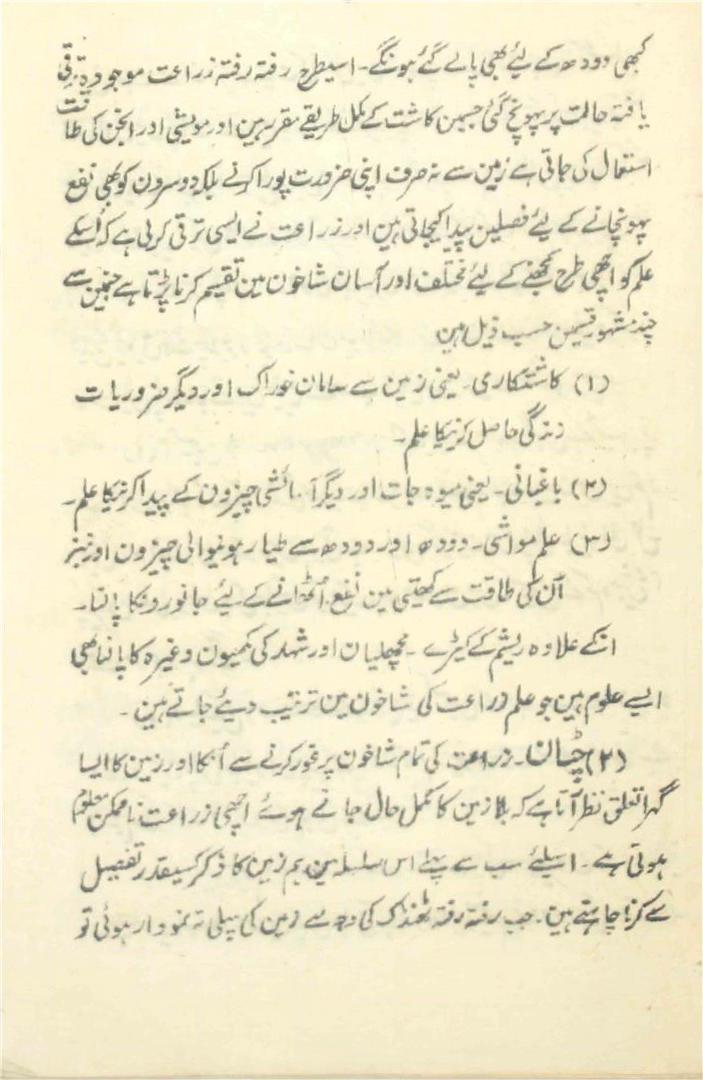 کبھی دودھ کے لئے بھی پالے گئے ہونگے۔ اسیطرح رفتہ رفتہ زراعت موجودہ ترقی
یافتہ حالت پر پہونچ گئی جسمین کاشت کے مکمل طریقے مقرر ہین اور مویشی اور انجن کی طاقت
استعمال کی جاتی ہے زمین سے نہ صرف اپنی ضرورت پورا کرنے بلکہ دوسرون کو بھی نفع
پہونچانے کے لیئے فصلین پیدا کیجاتی ہین اور زراعت نے ایسی ترقی کرلی ہے کہ اُسکے
علم کو اچھی طرح سمجھنے کے لیئے مختلف اور آسان شاخون مین تقسیم کرنا پڑتا ہے جنمین سے
چند مشہور قسمین حسب ذیل ہین
(۱) کاشتکاری۔ یعنی زمین سے سامان خوراک اور دیگر ضروریات
زندگی حاصل کرنیکا علم۔
(۲) باغبانی۔ یعنی میوہ جات اور دیگر آسائشی چیزون کے پیدا کرنیکا علم۔
(۳) علم مواشی۔ دودھ اور دودھ سے طیار ہونیوالی چیزون اور نیز
اُن کی طاقت سے کھیتی مین نفع اُٹھانے کے لیئے جانورونکا پالنا۔
انکے علاوہ ریشم کے کیڑے۔ مچھلیان اور شہد کی مکھیون وغیرہ کا پالنا بھی
ایسے علوم ہین جو علم زراعت کی شاخون مین ترتیب دیئے جاتے ہین۔
(۲) چٹان۔ زراعت کی تمام شاخون پر غور کرنے سے اُنکا اور زمین کا ایسا
گہرا تعلق نظر آتا ہے کہ بلا زمین کا مکمل حال جانے ہوئے اچھی زراعت ناممکن معلوم
ہوتی ہے۔ اسیلئے سب سے پہلے اس سلسلہ مین ہم زمین کا ذکر کسیقدر تفصیل
سے کرنا چاہتے ہین۔ جب رفتہ رفتہ ٹھنڈک کی وجہ سے زمین کی پہلی تہ نمودار ہوئی تو